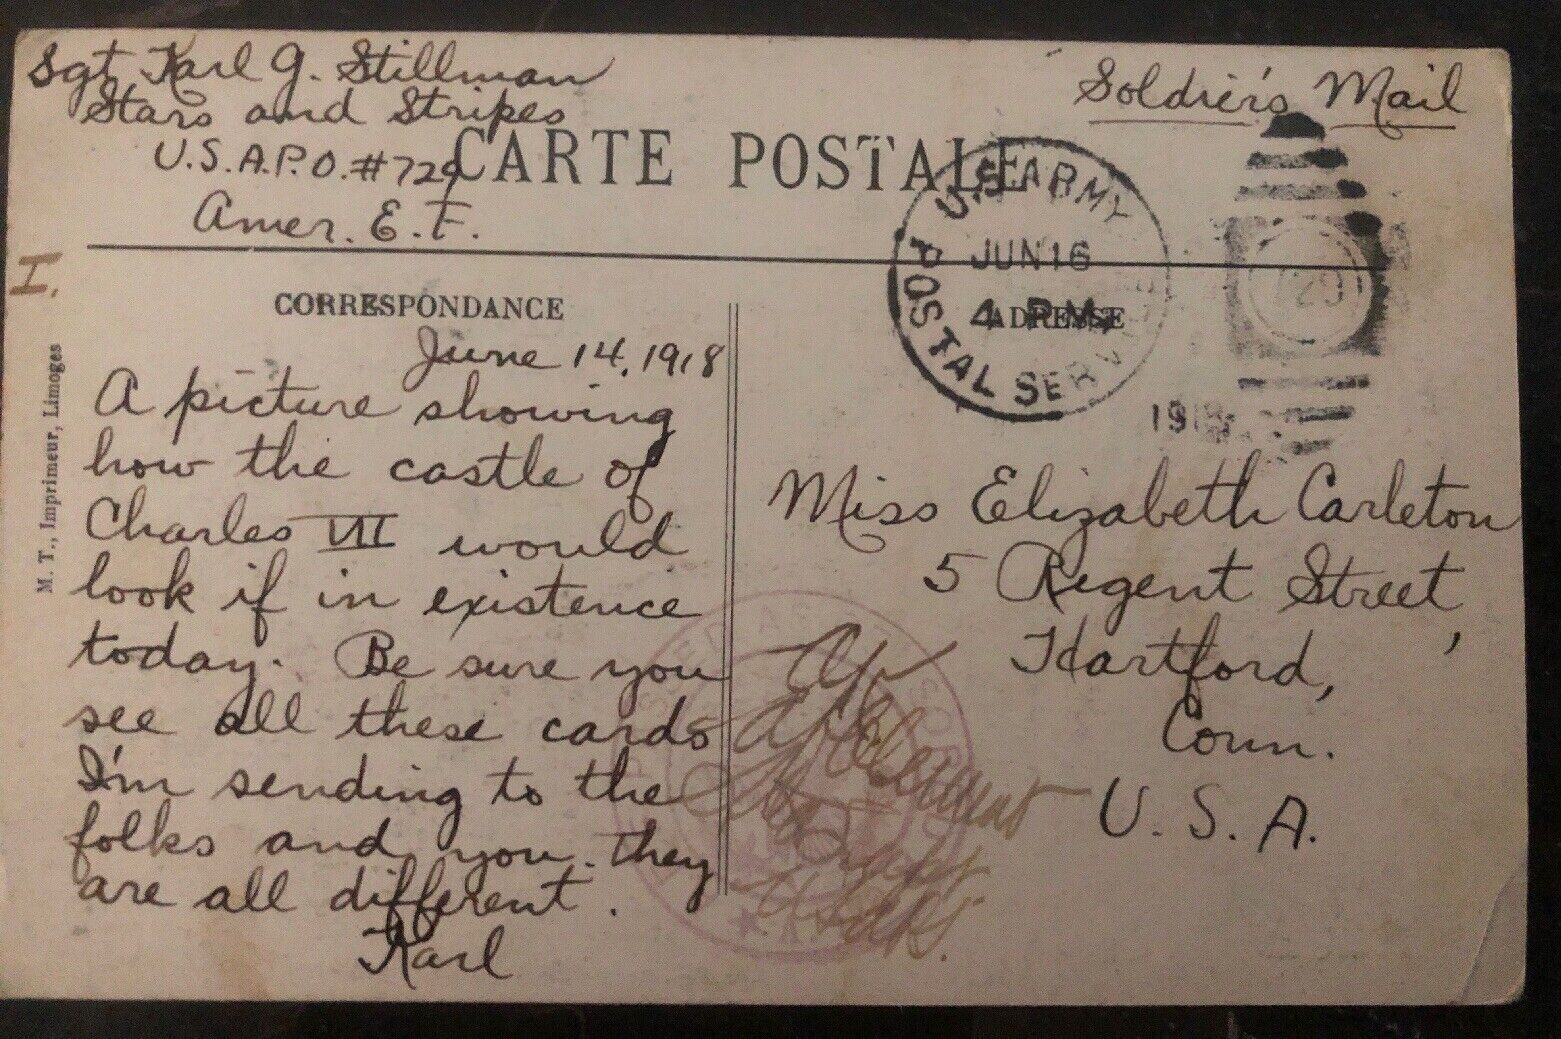 Sgt Karl G. Stillman
Stars and Stripes
U.S.A.P.O. #729
Amer. E. F.
Soldier's Mail
CARTE POSTALE
U.S. ARMY POSTAL SERVICE
JUN 16
4 P M
729
I.
CORRESPONDANCE
ADRESSE
M. T., Imprimeur, Limoges
June 14, 1918
A picture showing
how the castle of
Charles VII would
look if in existence
today. Be sure you
see all these cards
I'm sending to the
folks and you. they
are all different.
Karl
Miss Elizabeth Carleton
5 Regent Street,
Hartford,
Conn.
U. S. A.